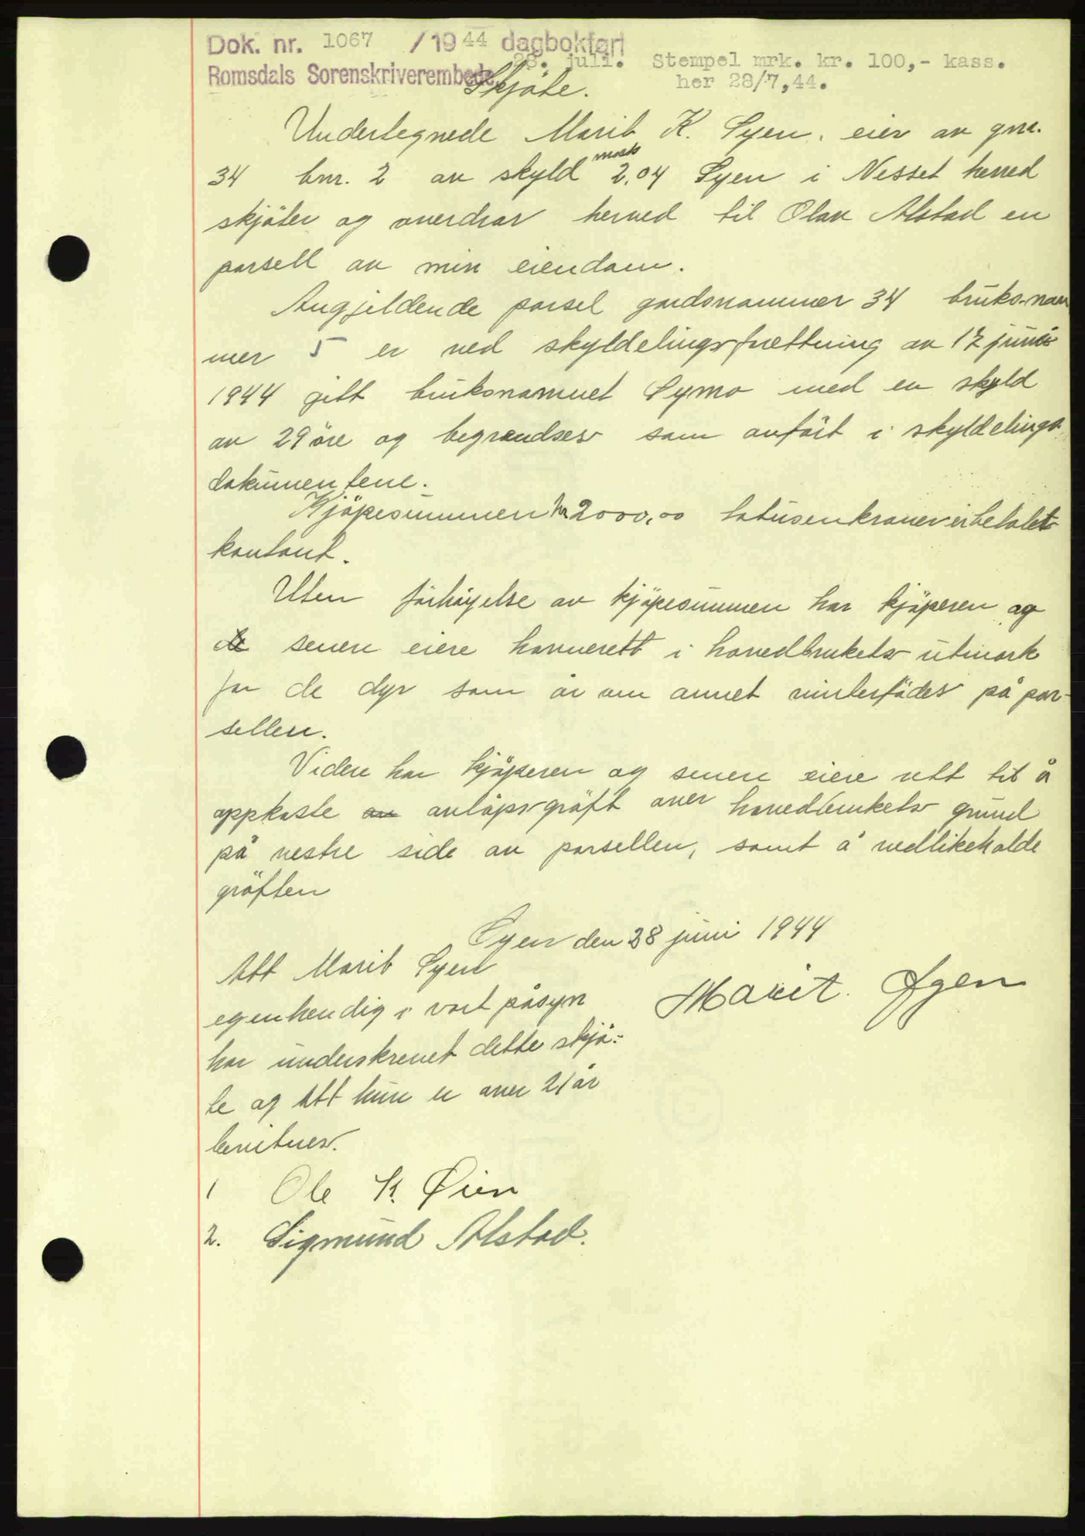 Dok. nr. 1067 / 1944 dagbokført
28. juli. Stempel mrk. kr. 100,- kass.
Romsdals Sorenskriverembede her 28/7,44.
Skjöte.
Undertegnede Marit K. Öyen, eier av gnr.
34 bnr. 2 av skyld mark 2,04 Öyen i Nesset herred
skjöter og overdrar herved til Olav Alstad en
parsell av min eiendom.
Angjeldende parsel gardsnummer 34 bruksnum
mer 5 er ved skyldelingsforretning av 12 juni
1944 gitt bruksnamnet Öymo med en skyld
av 29 öre og begrendses som anfört i skyldelings
dokumentene.
Kjöpesummen kr 2000,00 totusenkroner er betalt
kontant.
Uten forhöyelse av kjöpesummen har kjöperen og
de senere eiere havnerett i hovedbrukets utmark
for de dyr som år om annet vinterfödes på par-
sellen.
Videre har kjöperen og senere eiere rett til å
oppkaste av avlöpsgröft over hovedbrukets grund
på vestre side av parsellen, samt å vedlikeholde
gröften
Öyen den 28 juni 1944
Att Marit Öyen
egenhendig i vort påsyn
Marit. Øyen
har underskrevet dette skjö-
te og att hun er over 21 år
bevitnes.
1 Ole K. Øien
2. Sigmund Alstad.